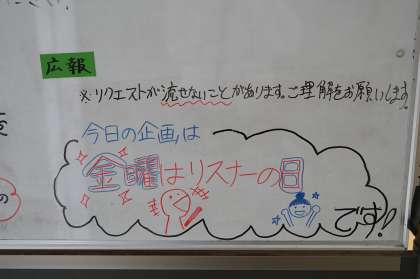 広報
※リクエストが流せないことがあります。ご理解をお願いします
今日の企画は
金曜はリスナーの日
です!!